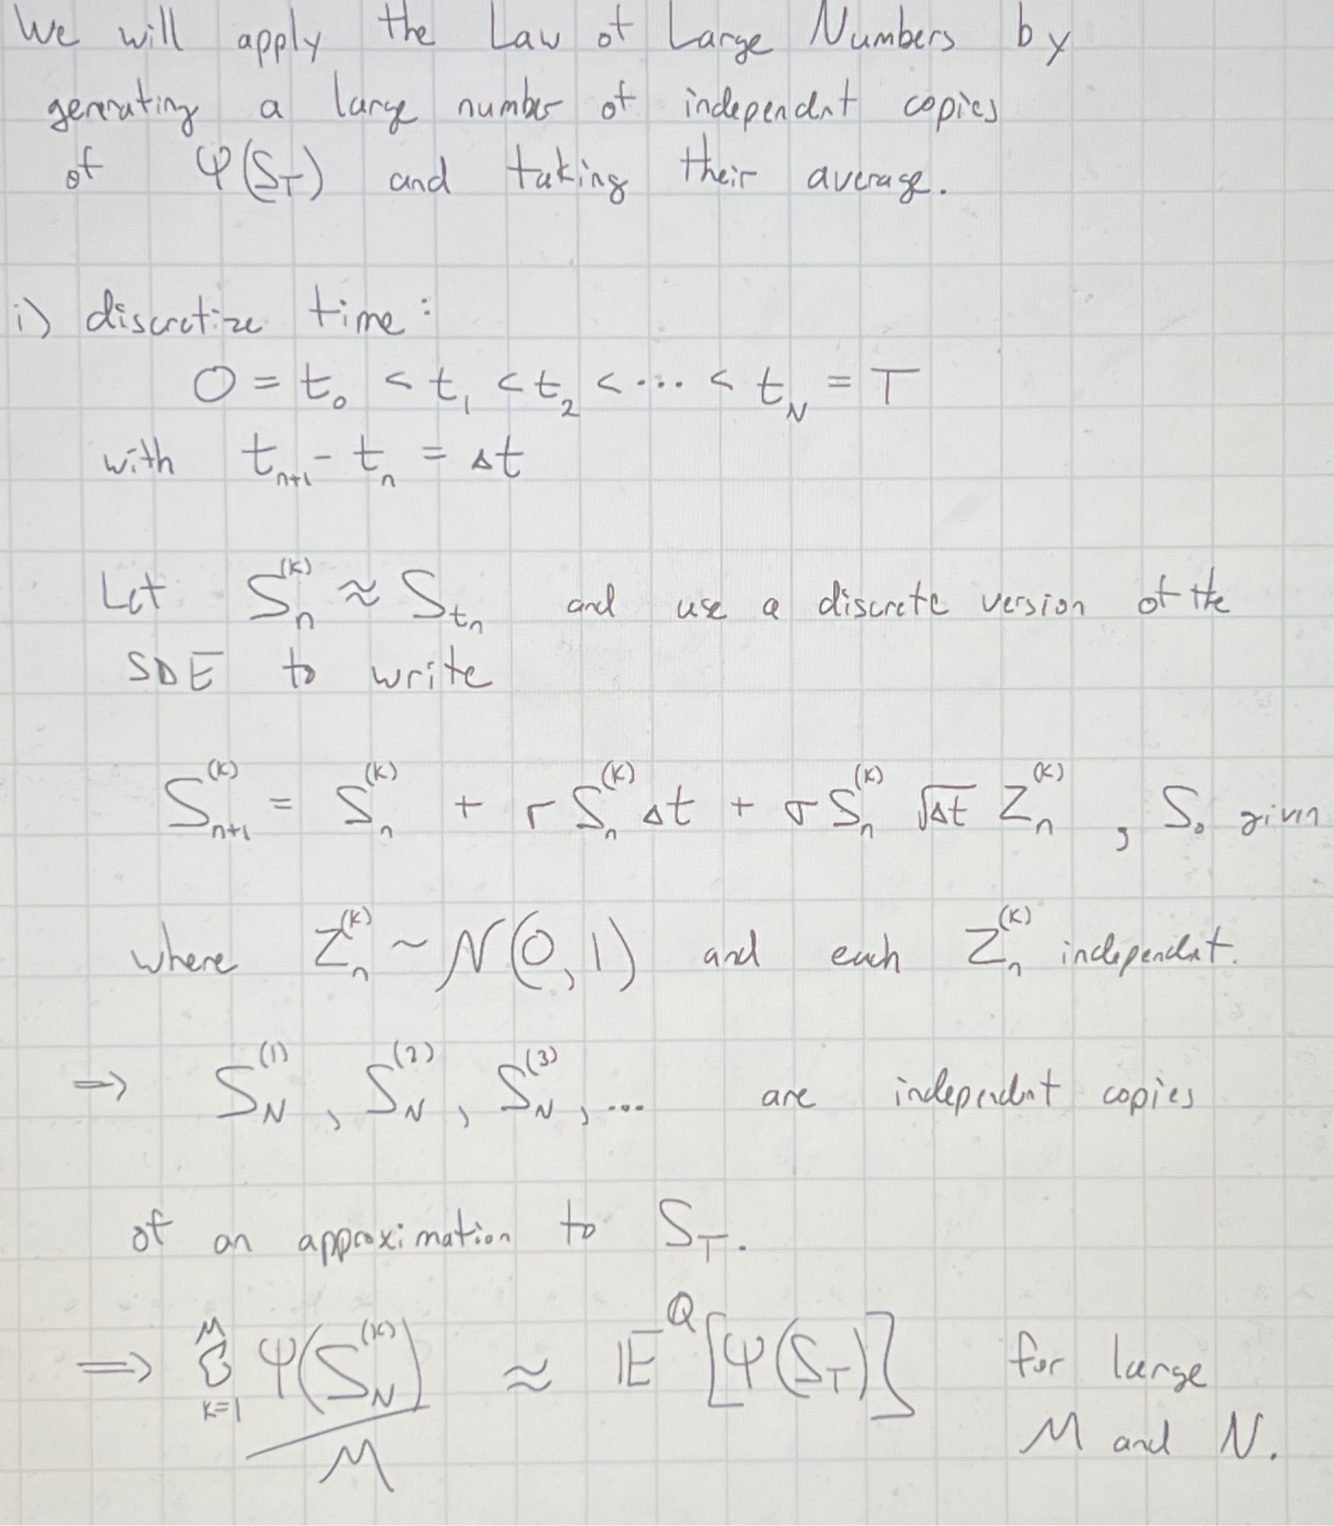 We will apply the Law of Large Numbers by
generating a large number of independent copies
of Ψ(S_T) and taking their average.
i) discretize time:
0 = t_0 < t_1 < t_2 < ... < t_N = T
with t_{n+1} - t_n = Δt
Let S_n^{(k)} ≈ S_{t_n} and use a discrete version of the
SDE to write
S_{n+1}^{(k)} = S_n^{(k)} + r S_n^{(k)} Δt + σ S_n^{(k)} √Δt Z_n^{(k)} , S_0 given
where Z_n^{(k)} ~ N(0,1) and each Z_n^{(k)} independent.
⇒ S_N^{(1)}, S_N^{(2)}, S_N^{(3)}, ... are independent copies
of an approximation to S_T.
⇒ Σ_{k=1}^{M} Ψ(S_N^{(k)}) / M ≈ 𝔼^Q[Ψ(S_T)] for large
M and N.